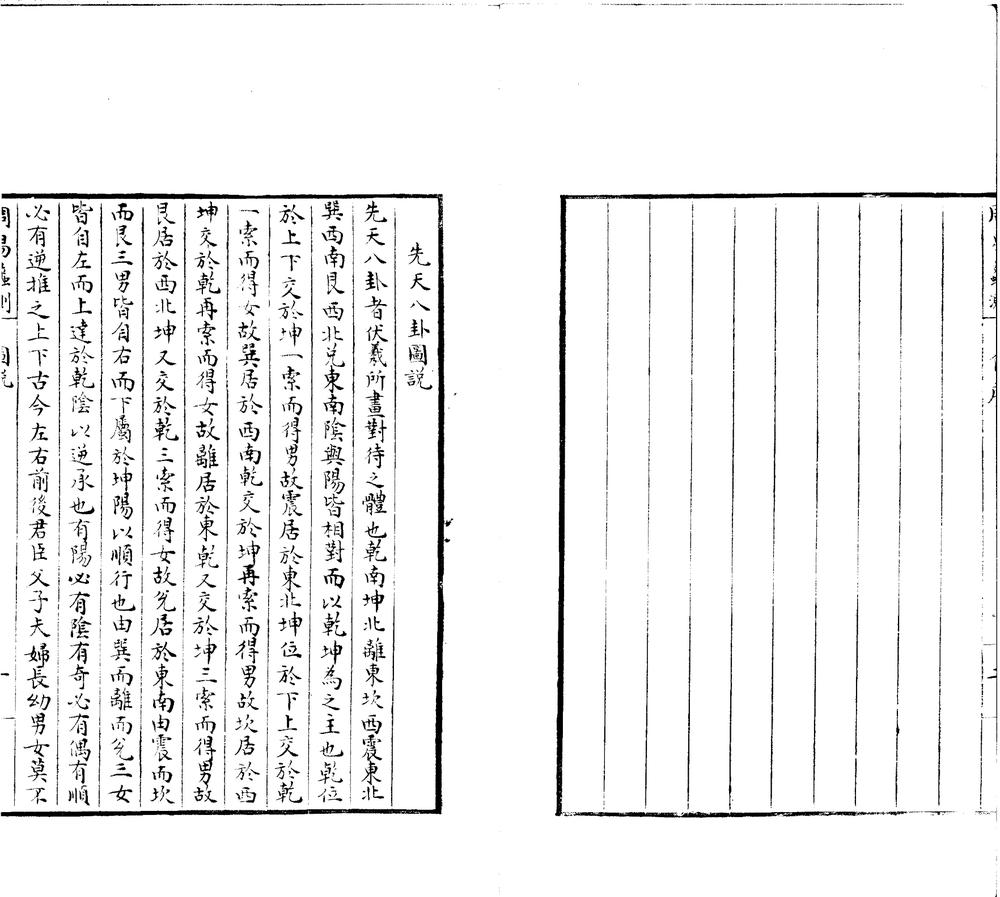 先天八卦圖說
先天八卦者伏羲所畫對待之體也乾南坤北離東坎西震東北
巽西南艮西北兌東南陰與陽皆相對而以乾坤為之主也乾位
於上下交於坤一索而得男故震居於東北坤位於下上交於乾
一索而得女故巽居於西南乾交於坤再索而得男故坎居於西
坤交於乾再索而得女故離居於東乾又交於坤三索而得男故
艮居於西北坤又交於乾三索而得女故兌居於東南由震而坎
而艮三男皆自右而下屬於坤陽以順行也由巽而離而兌三女
皆自左而上達於乾陰以逆承也有陽必有陰有奇必有偶有順
必有逆推之上下古今左右前後君臣父子夫婦長幼男女莫不
周易蠡測 圖說 一